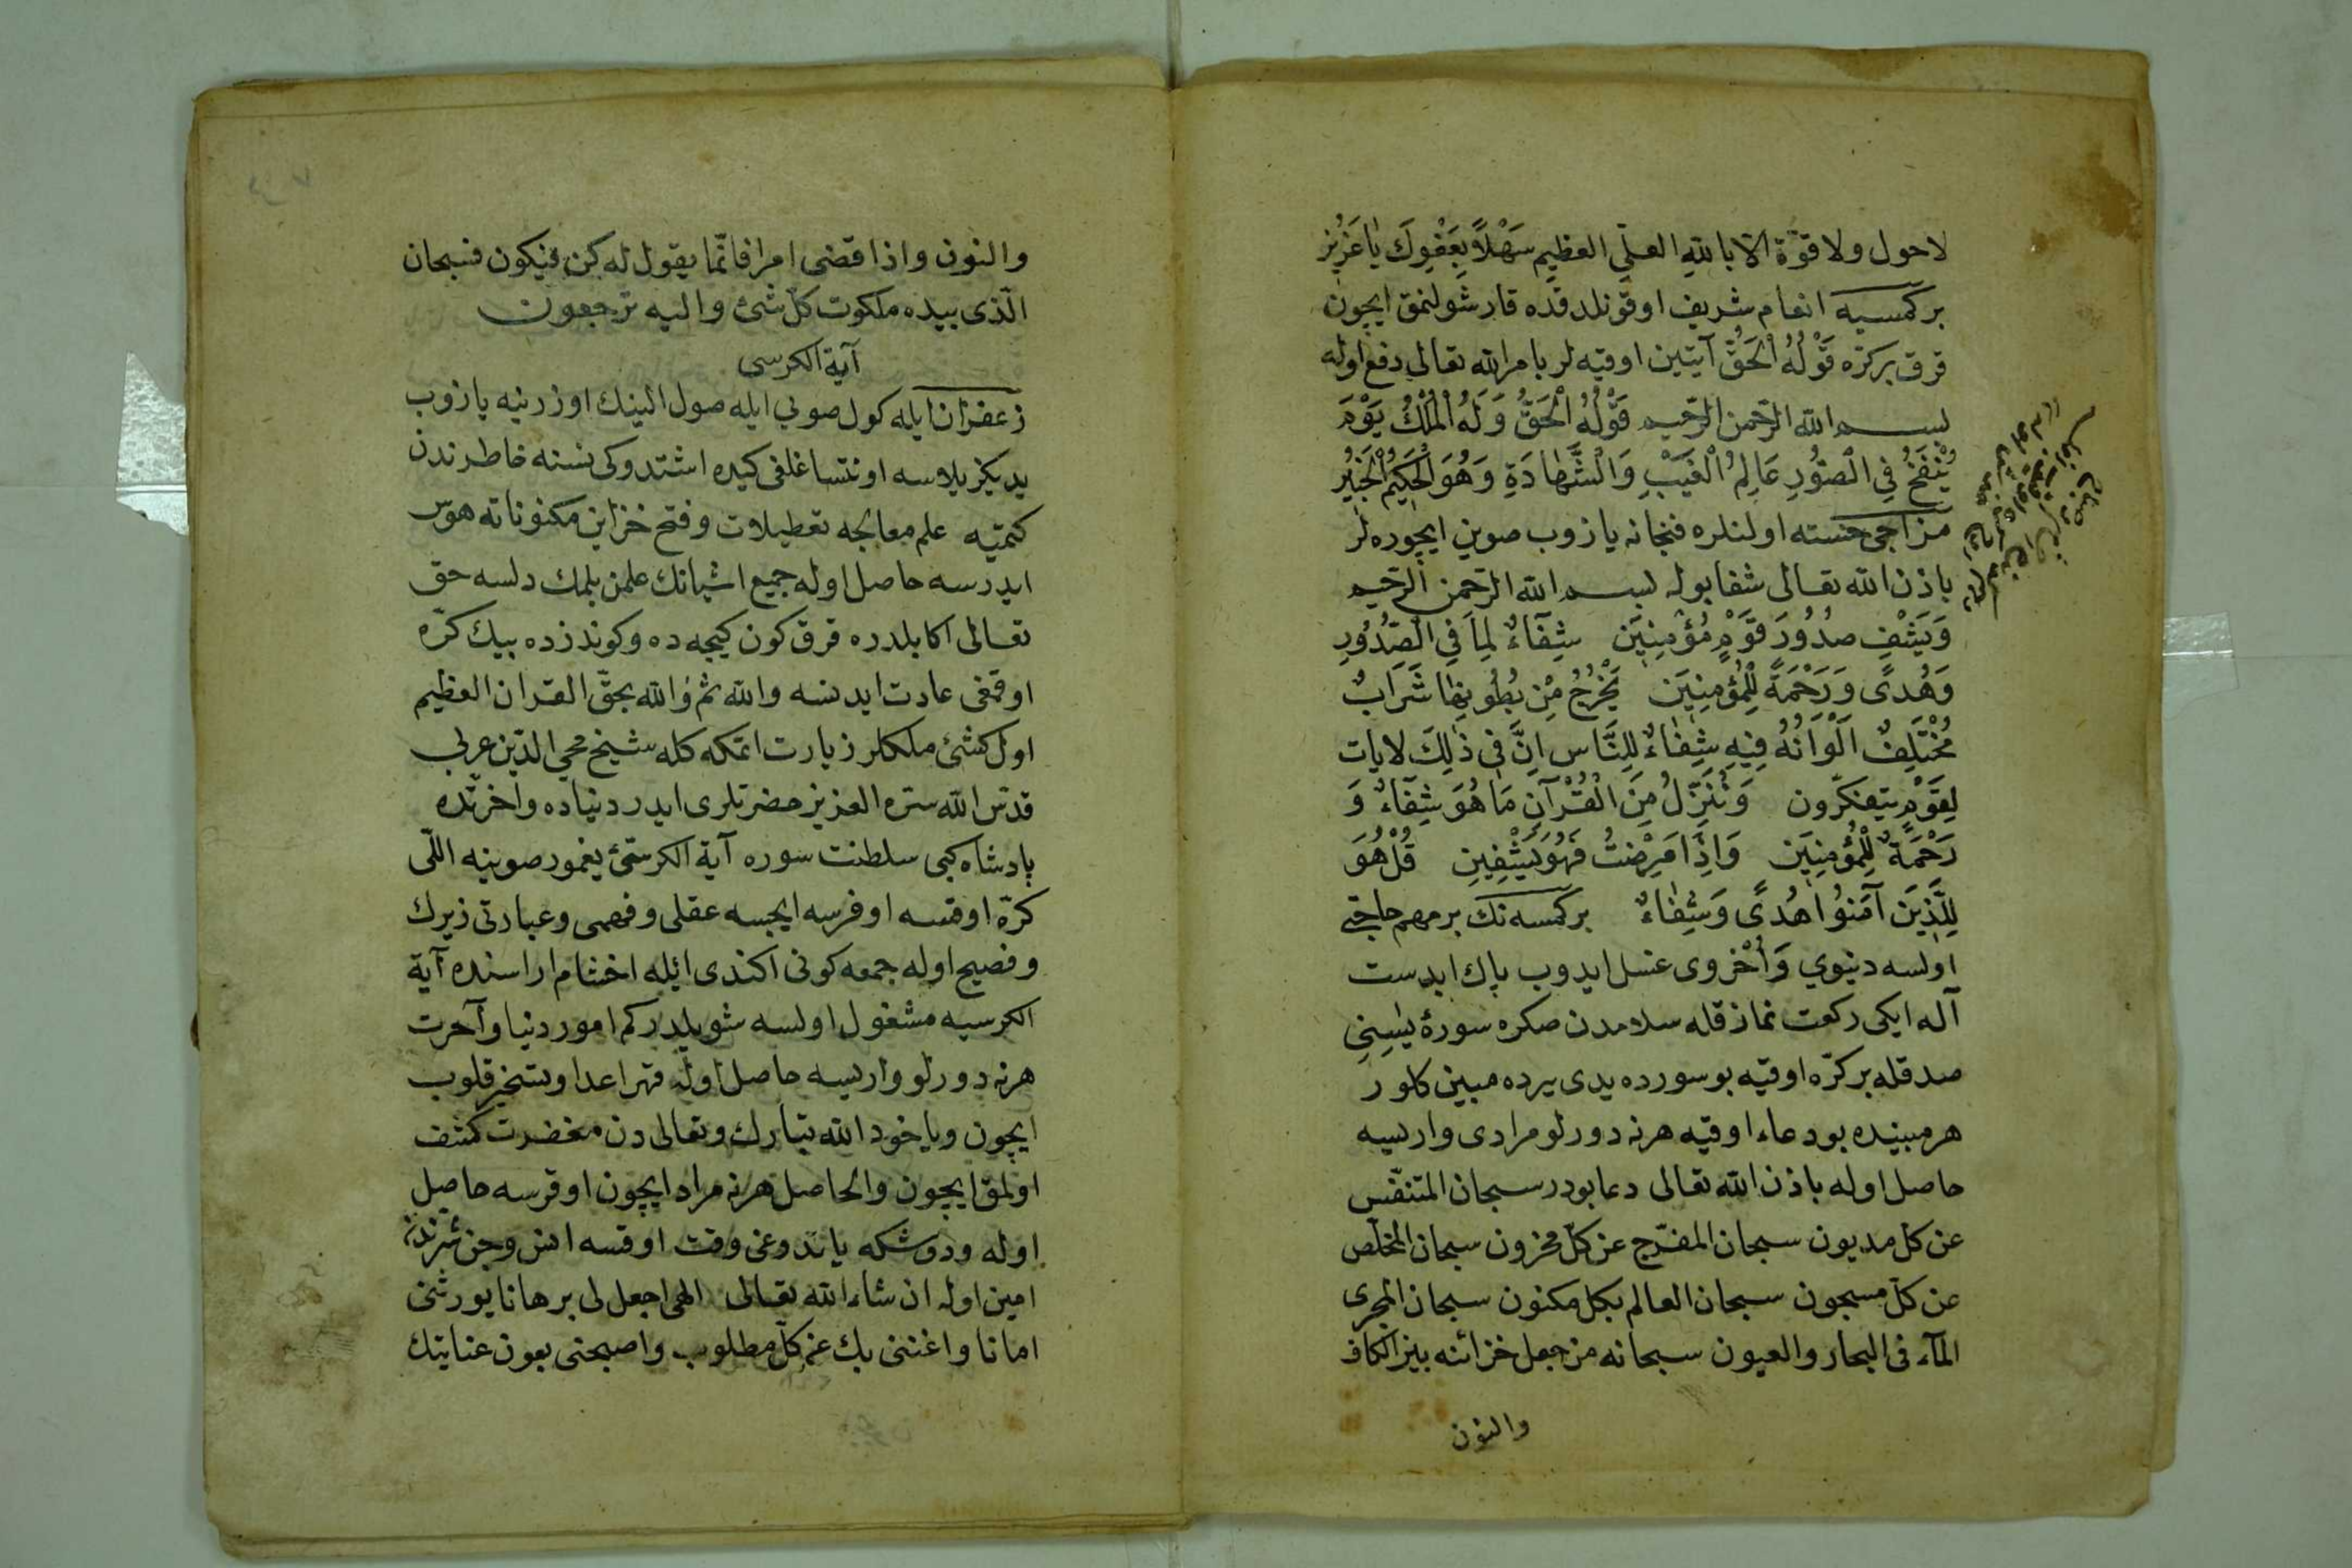 لاحول ولا قوّة الا بالله العلىّ العظيم سَهْلاً بِعَفْوِكَ يَا عَزِيز
بركمسيه انعام شريف اوقونلدقده قارشولنمق ايچون
قرق بركرّه قَوْلُهُ الْحَقّ آيتين اوقيه لر بامرالله تعالى دفع اوله
بسم الله الرّحمن الرّحيم قَوْلُهُ الْحَقُّ وَلَهُ الْمُلْكُ يَوْمَ
يُنْفَخُ فِي الصُّورِ عَالِمُ الْغَيْبِ وَالشَّهَادَةِ وَهُوَ الْحَكِيمُ الْخَبِيرُ
مزاجى خسته اولنلره فنجانه يازوب صوين ايچوره لر
باذن الله تعالى شفا بوله بسم الله الرّحمن الرّحيم
وَيَشْفِ صُدُورَ قَوْمٍ مُؤْمِنِينَ شِفَآءٌ لِمَا فِي الصُّدُورِ
وَهُدًى وَرَحْمَةً لِلْمُؤْمِنِينَ يَخْرُجُ مِنْ بُطُونِهَا شَرَابٌ
مُخْتَلِفٌ اَلْوَانُهُ فِيهِ شِفَاءٌ لِلنَّاس اِنَّ فِى ذٰلِكَ لايات
لِقَوْمٍ يتفكّرون وَنُنَزِّلُ مِنَ الْقُرْآنِ مَا هُوَ شِفَآءٌ وَ
رَحْمَةٌ لِلْمُؤْمِنِينَ وَاِذَا مَرِضْتُ فَهُوَ يَشْفِينِ قُلْ هُوَ
لِلَّذِينَ آمَنُوا هُدًى وَشِفَاءٌ بركمسه نك برمهم حاجتى
اولسه دنيوي وَأُخْروى غسل ايدوب پاك ابدست
آله ايكى ركعت نماز قله سلامدن صكره سورۀ يٰسِينِ
صدقله بركرّه اوقيه بو سورده يدى يرده مبين كلور
هر مبينده بو دعاء اوقيه هرنه دورلو مرادى واريسه
حاصل اوله باذن الله تعالى دعا بودر سبحان المتنفّس
عن كل مديون سبحان المفرّج عن كلّ محزون سبحان المخلّص
عن كلّ مسجون سبحان العالم بكل مكنون سبحان المجرى
المآء فى البحار والعيون سبحانه من جعل خزائنه بين الكاف
والنون
والنون واذا قضى امرا فانّما يقول له كن فيكون فسبحان
الّذى بيده ملكوت كلّ شئ واليه ترجعون
آية الكرسى
زعفران ايله كول صويى ايله صول الينك اوزرينه يازوب
يديكز يلاسه اونتساغلغى كيده اشتدوكى نسنه خاطرندن
كتميه علم معالجه تعطيلات وفتح خزاين مكنوناته هوس
ايدرسه حاصل اوله جميع اشيانك علمن بلمك دلسه حق
تعالى اكا بلدره قرق كون كيجه ده وكوندزده بيك كرّه
اوقمغى عادت ايدنسه والله ثمّ والله بحقّ القران العظيم
اول كشئ ملكلر زيارت اتمكه كله شيخ محي الدّين عربى
قدّس الله سرّه العزيز حضرتلرى ايدر دنياده واخرتده
پادشاه كبى سلطنت سوره آية الكرسئ يغمور صوينه اللّى
كرّه اوقسه اوفرسه ايچسه عقلى وفهمى وعبادتى زيرك
وفصيح اوله جمعه كونى اكندى ائيله اخشام اراسنده آية
الكرسيه مشغول اولسه شويلدركم امور دنيا وآخرت
هرنه دورلو واريسه حاصل اوله قهر اعدا وتسخير قلوب
ايچون وياخود الله تبارك وتعالى دن مغفرت كشف
اولمق ايچون والحاصل هرنه مراد ايچون اوقرسه حاصل
اوله ودوشكه ياتدوغى وقت اوقسه انس وجن شرندن
امين اوله ان شاء الله تعالى الهى اجعل لى برهانا يورثنى
امانا واغننى بك عن كلّ مطلوب واصبحنى بعون عنايتك